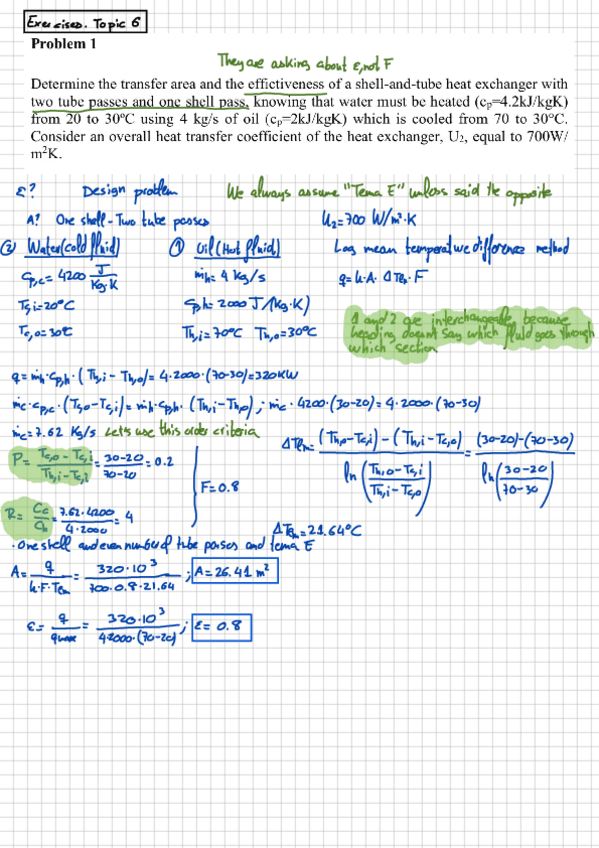 Exercises. Topic 6
Problem 1
They are asking about ε, not F
Determine the transfer area and the effictiveness of a shell-and-tube heat exchanger with
two tube passes and one shell pass, knowing that water must be heated (cp=4.2kJ/kgK)
from 20 to 30ºC using 4 kg/s of oil (cp=2kJ/kgK) which is cooled from 70 to 30ºC.
Consider an overall heat transfer coefficient of the heat exchanger, U2, equal to 700W/
m²K.
ε? Design problem We always assume "Tema E" unless said the opposite
A? One shell - Two tube passes U2=700 W/m²·K
② Water (cold fluid) ① Oil (Hot fluid) Log mean temperature difference method
Cp,c= 4200 J/Kg·K ṁh= 4 Kg/s q= U·A·ΔTlm·F
Tc,i=20ºC Cp,h= 2000 J/(Kg·K)
Tc,o=30ºC Th,i=70ºC Th,o=30ºC
1 and 2 are interchangeable, because
heading doesn't say which fluid goes through
which section
q= ṁh·Cp,h·(Th,i-Th,o)= 4·2000·(70-30)=320KW
ṁc·Cp,c·(Tc,o-Tc,i)= ṁh·Cp,h·(Th,i-Th,o); ṁc·4200·(30-20)= 4·2000·(70-30)
ṁc=7.62 Kg/s Let's use this order criteria
P= (Tc,o-Tc,i)/(Th,i-Tc,i) = (30-20)/(70-20) = 0.2
ΔTlm= ((Th,o-Tc,i)-(Th,i-Tc,o))/ln((Th,o-Tc,i)/(Th,i-Tc,o)) = ((30-20)-(70-30))/ln((30-20)/(70-30))
F=0.8
R= Cc/Ch = (7.62·4200)/(4·2000) = 4
ΔTlm=21.64ºC
· One shell and even number of tube passes and tema E
A= q/(U·F·Tlm) = 320·10³/(700·0.8·21.64); A=26.41 m²
ε= q/qmax = 320·10³/(4·2000·(70-20)); ε= 0.8